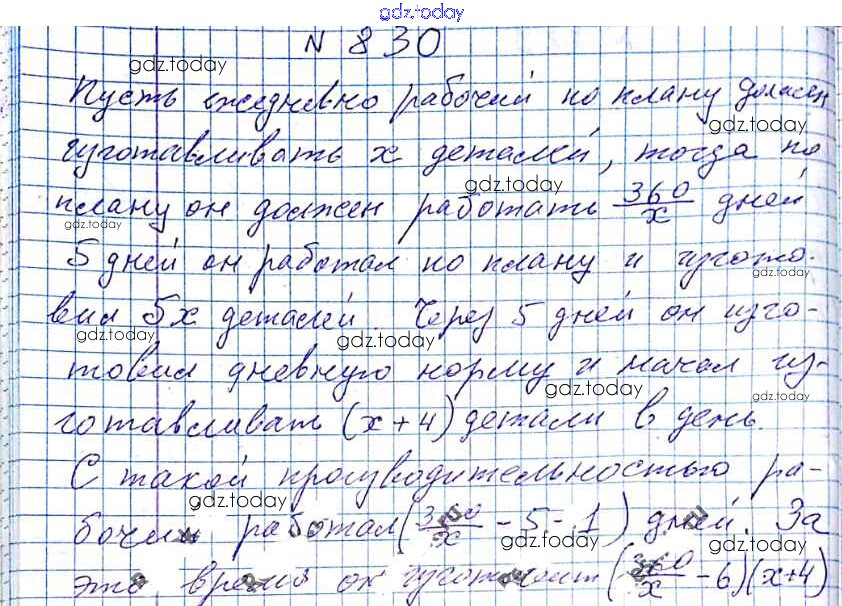 gdz.today
N 830
gdz.today
Пусть ежедневно рабочий по плану должен
gdz.today
изготавливать x деталей, тогда по
gdz.today
плану он должен работать 360/x дней
gdz.today
5 дней он работал по плану и изгото-
gdz.today
вил 5x деталей. Через 5 дней он изго-
gdz.today gdz.today
товил дневную норму и начал из-
gdz.today gdz.today
готавливать (x+4) детали в день.
С такой производительностью ра-
gdz.today
бочий работал (360/x - 5 - 1) дней. За
gdz.today gdz.today
это время он изготовит (360/x - 6)(x+4)